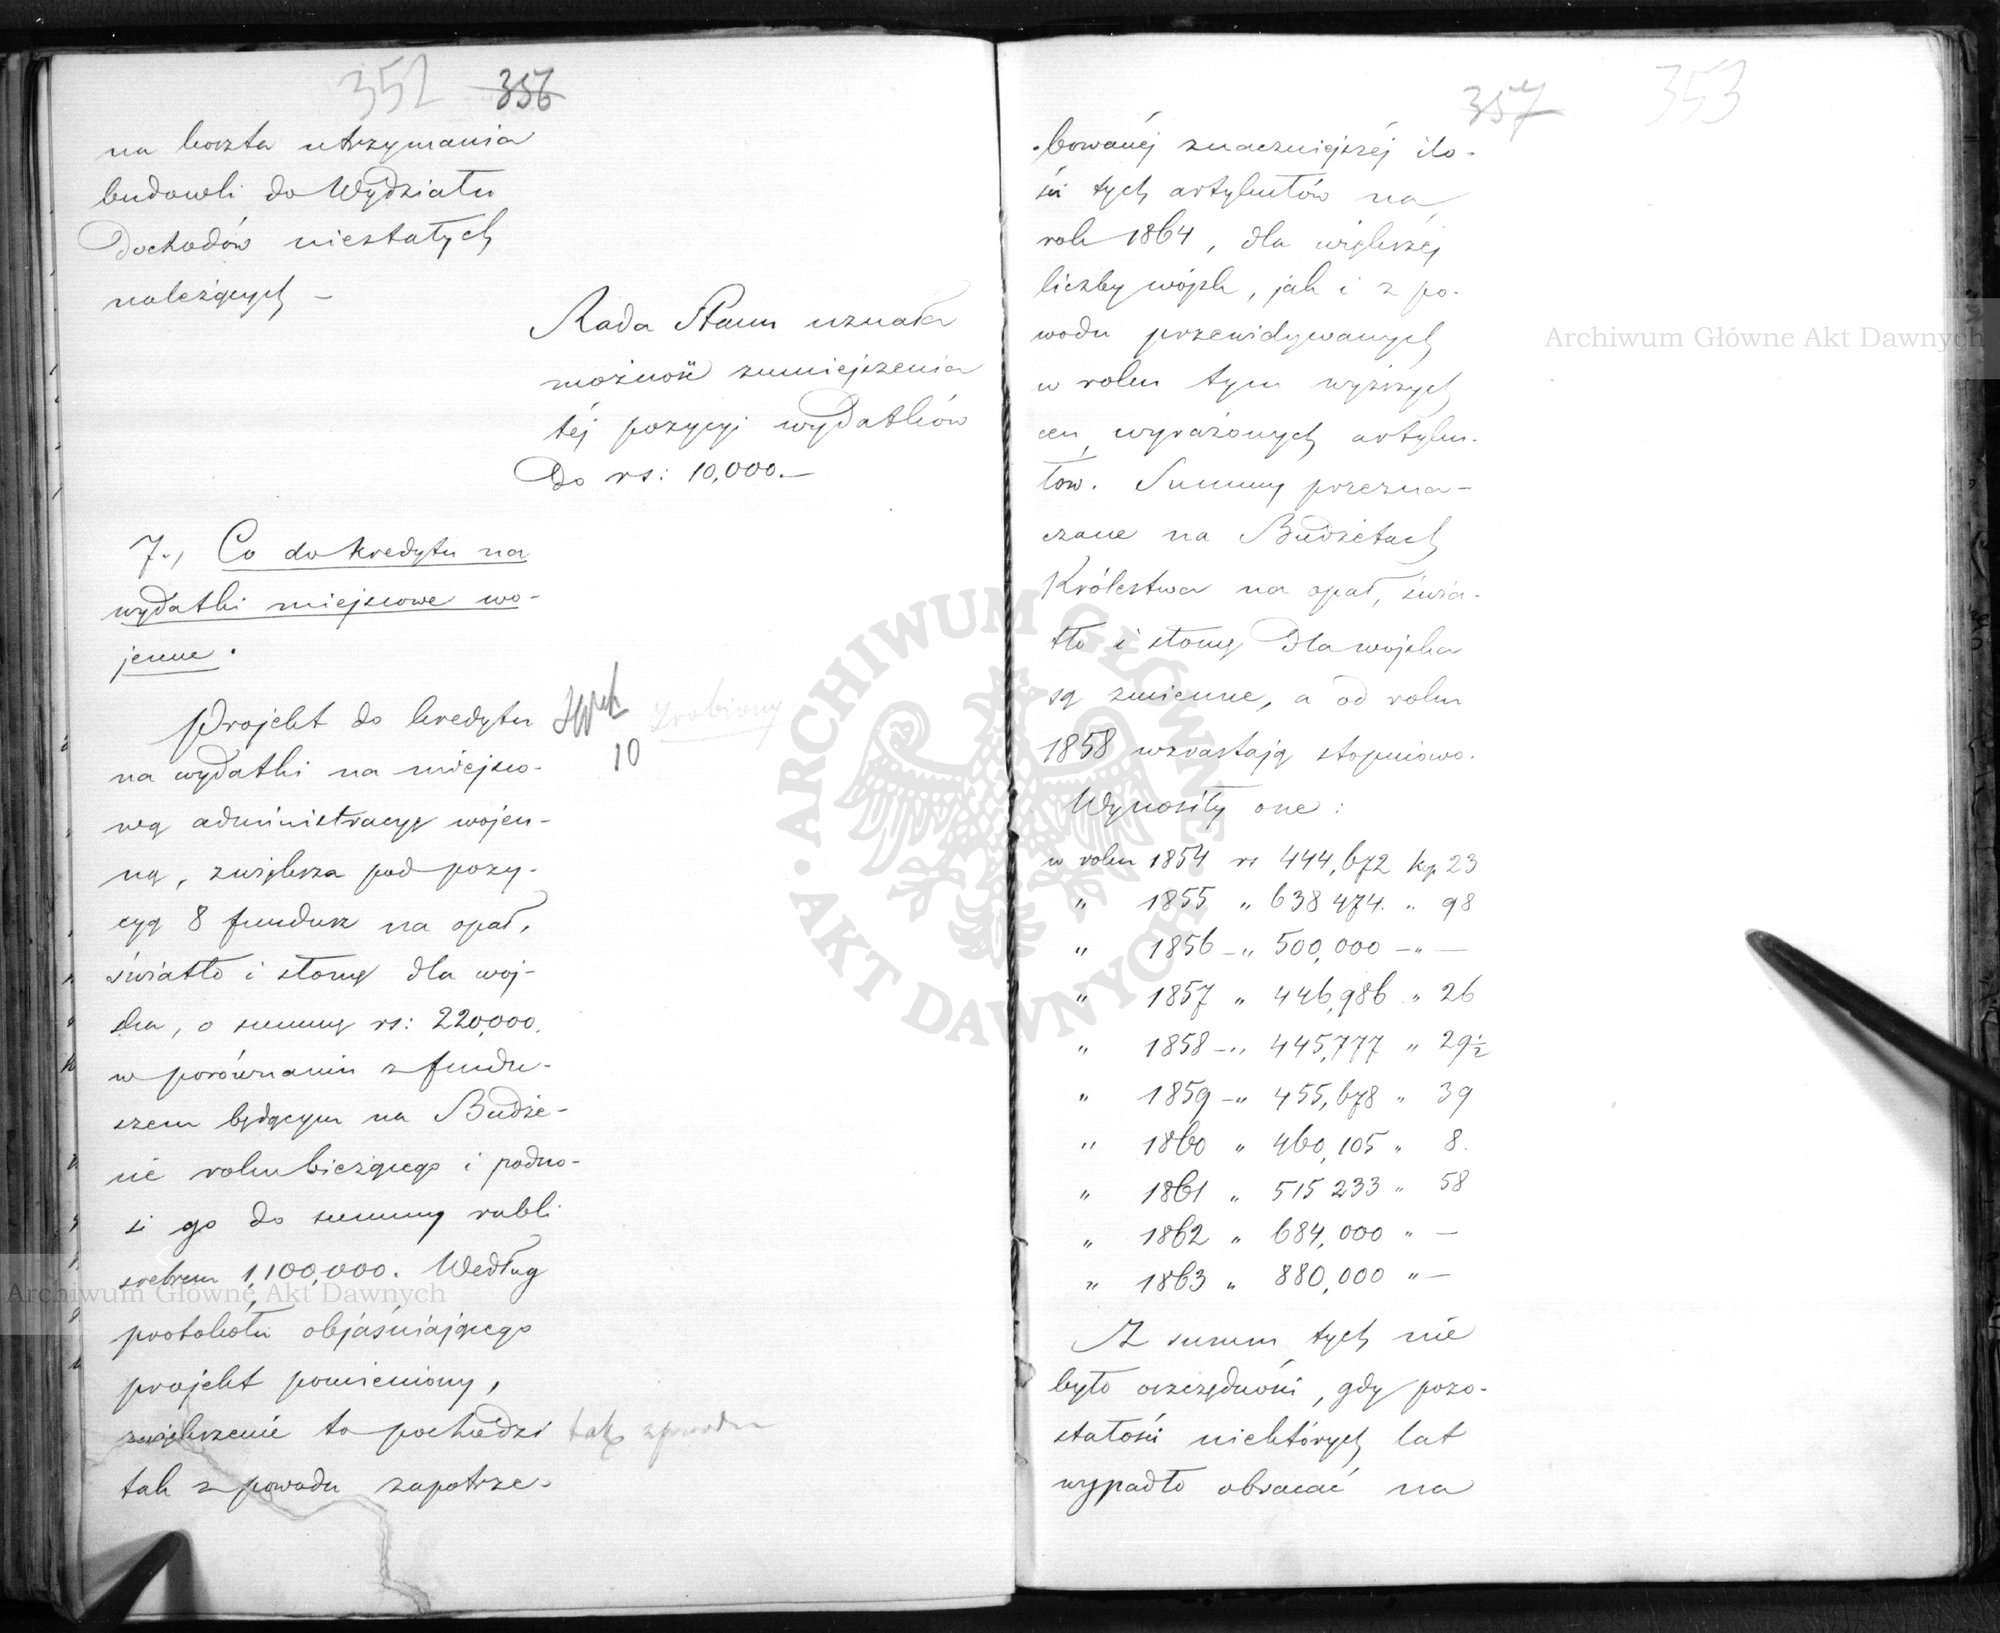 352 356
na koszta utrzymania
budowli do Wydziału
Dochodów niestałych
należących –
Rada Stanu uznała
możność zmniejszenia
téj pozycyi wydatków
do rs: 10,000.—
7., Co do kredytu na
wydatki miejscowe wo-
jenne.
Projekt do kredytu
na wydatki na miejsco-
wą administracyę wojen-
ną, zwiększa pod pozy-
cyą 8 fundusz na opał,
światło i słomę dla woj-
ska, o summę rs: 220,000.
w porównaniu z fundu-
szem będącym na Budże-
cie roku bieżącego i podno-
si go do summy rubli
srebrem 1,100,000. Według
protokółu objaśniającego
projekt pomieniony,
zwiększenie to pochodzi
tak z powodu zapotrze-
10
zrobiony
tak z powodu
357 353
bowanéj znaczniejszéj ilo-
ści tych artykułów na
rok 1864, dla większéj
liczby wojsk, jak i z po-
wodu przewidywanych
w roku tym wyższych
cen wyrażonych artyku-
łów. Summy przezna-
czane na Budżetach
Królestwa na opał, świa-
tło i słomę dla wojska
są zmienne, a od roku
1858 wzrastają stopniowo.
Wynosiły one:
w roku 1854 rs 444,672 kp. 23
" 1855 " 638 474. " 98
" 1856 – " 500,000 — " —
" 1857 " 446,986 " 26
" 1858 – " 445,777 " 29½
" 1859 – " 455,678 " 39
" 1860 " 460,105 " 8.
" 1861 " 515 233 " 58
" 1862 " 684,000 " —
" 1863 " 880,000 " —
Z summ tych nie
było oszczędności, gdy pozo-
stałości niektórych lat
wypadło obracać na
Archiwum Główne Akt Dawnych
Archiwum Główne Akt Dawnych
ARCHIWUM GŁÓWNE · AKT DAWNYCH ·